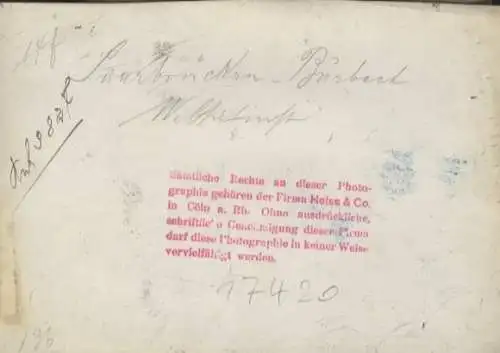 148
Saarbrücken - Burbach
Sämtliche Rechte an dieser Photo-
graphie gehören der Firma Heiss & Co.
in Cöln a. Rh. Ohne ausdrückliche,
schriftliche Genehmigung dieser Firma
darf diese Photographie in keiner Weise
vervielfältigt werden.
17420